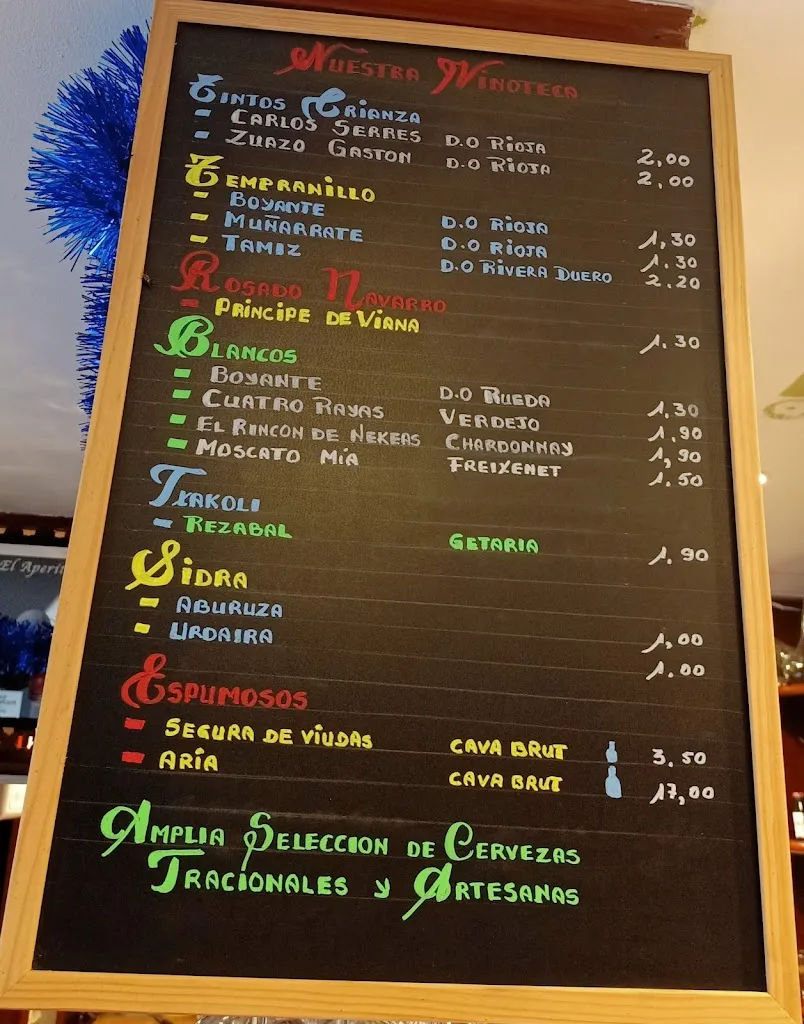 Nuestra Vinoteca
Tintos Crianza
- Carlos Serres D.O Rioja 2,00
- Zuazo Gaston D.O Rioja 2,00
Tempranillo
- Boyante D.O Rioja 1,30
- Muñarrate D.O Rioja 1.30
- Tamiz D.O Rivera Duero 2.20
Rosado Navarro
- Principe de Viana 1.30
Blancos
- Boyante D.O Rueda 1,30
- Cuatro Rayas Verdejo 1.90
- El Rincon de Nekeas Chardonnay 1,90
- Moscato Mía Freixenet 1.50
Txakoli
- Rezabal Getaria 1.90
Sidra
- Aburuza 1,00
- Urdaira 1.00
Espumosos
- Segura de Viudas Cava Brut 3.50
- Aría Cava Brut 17,00
Amplia Seleccion de Cervezas
Tracionales y Artesanas
El Aperit